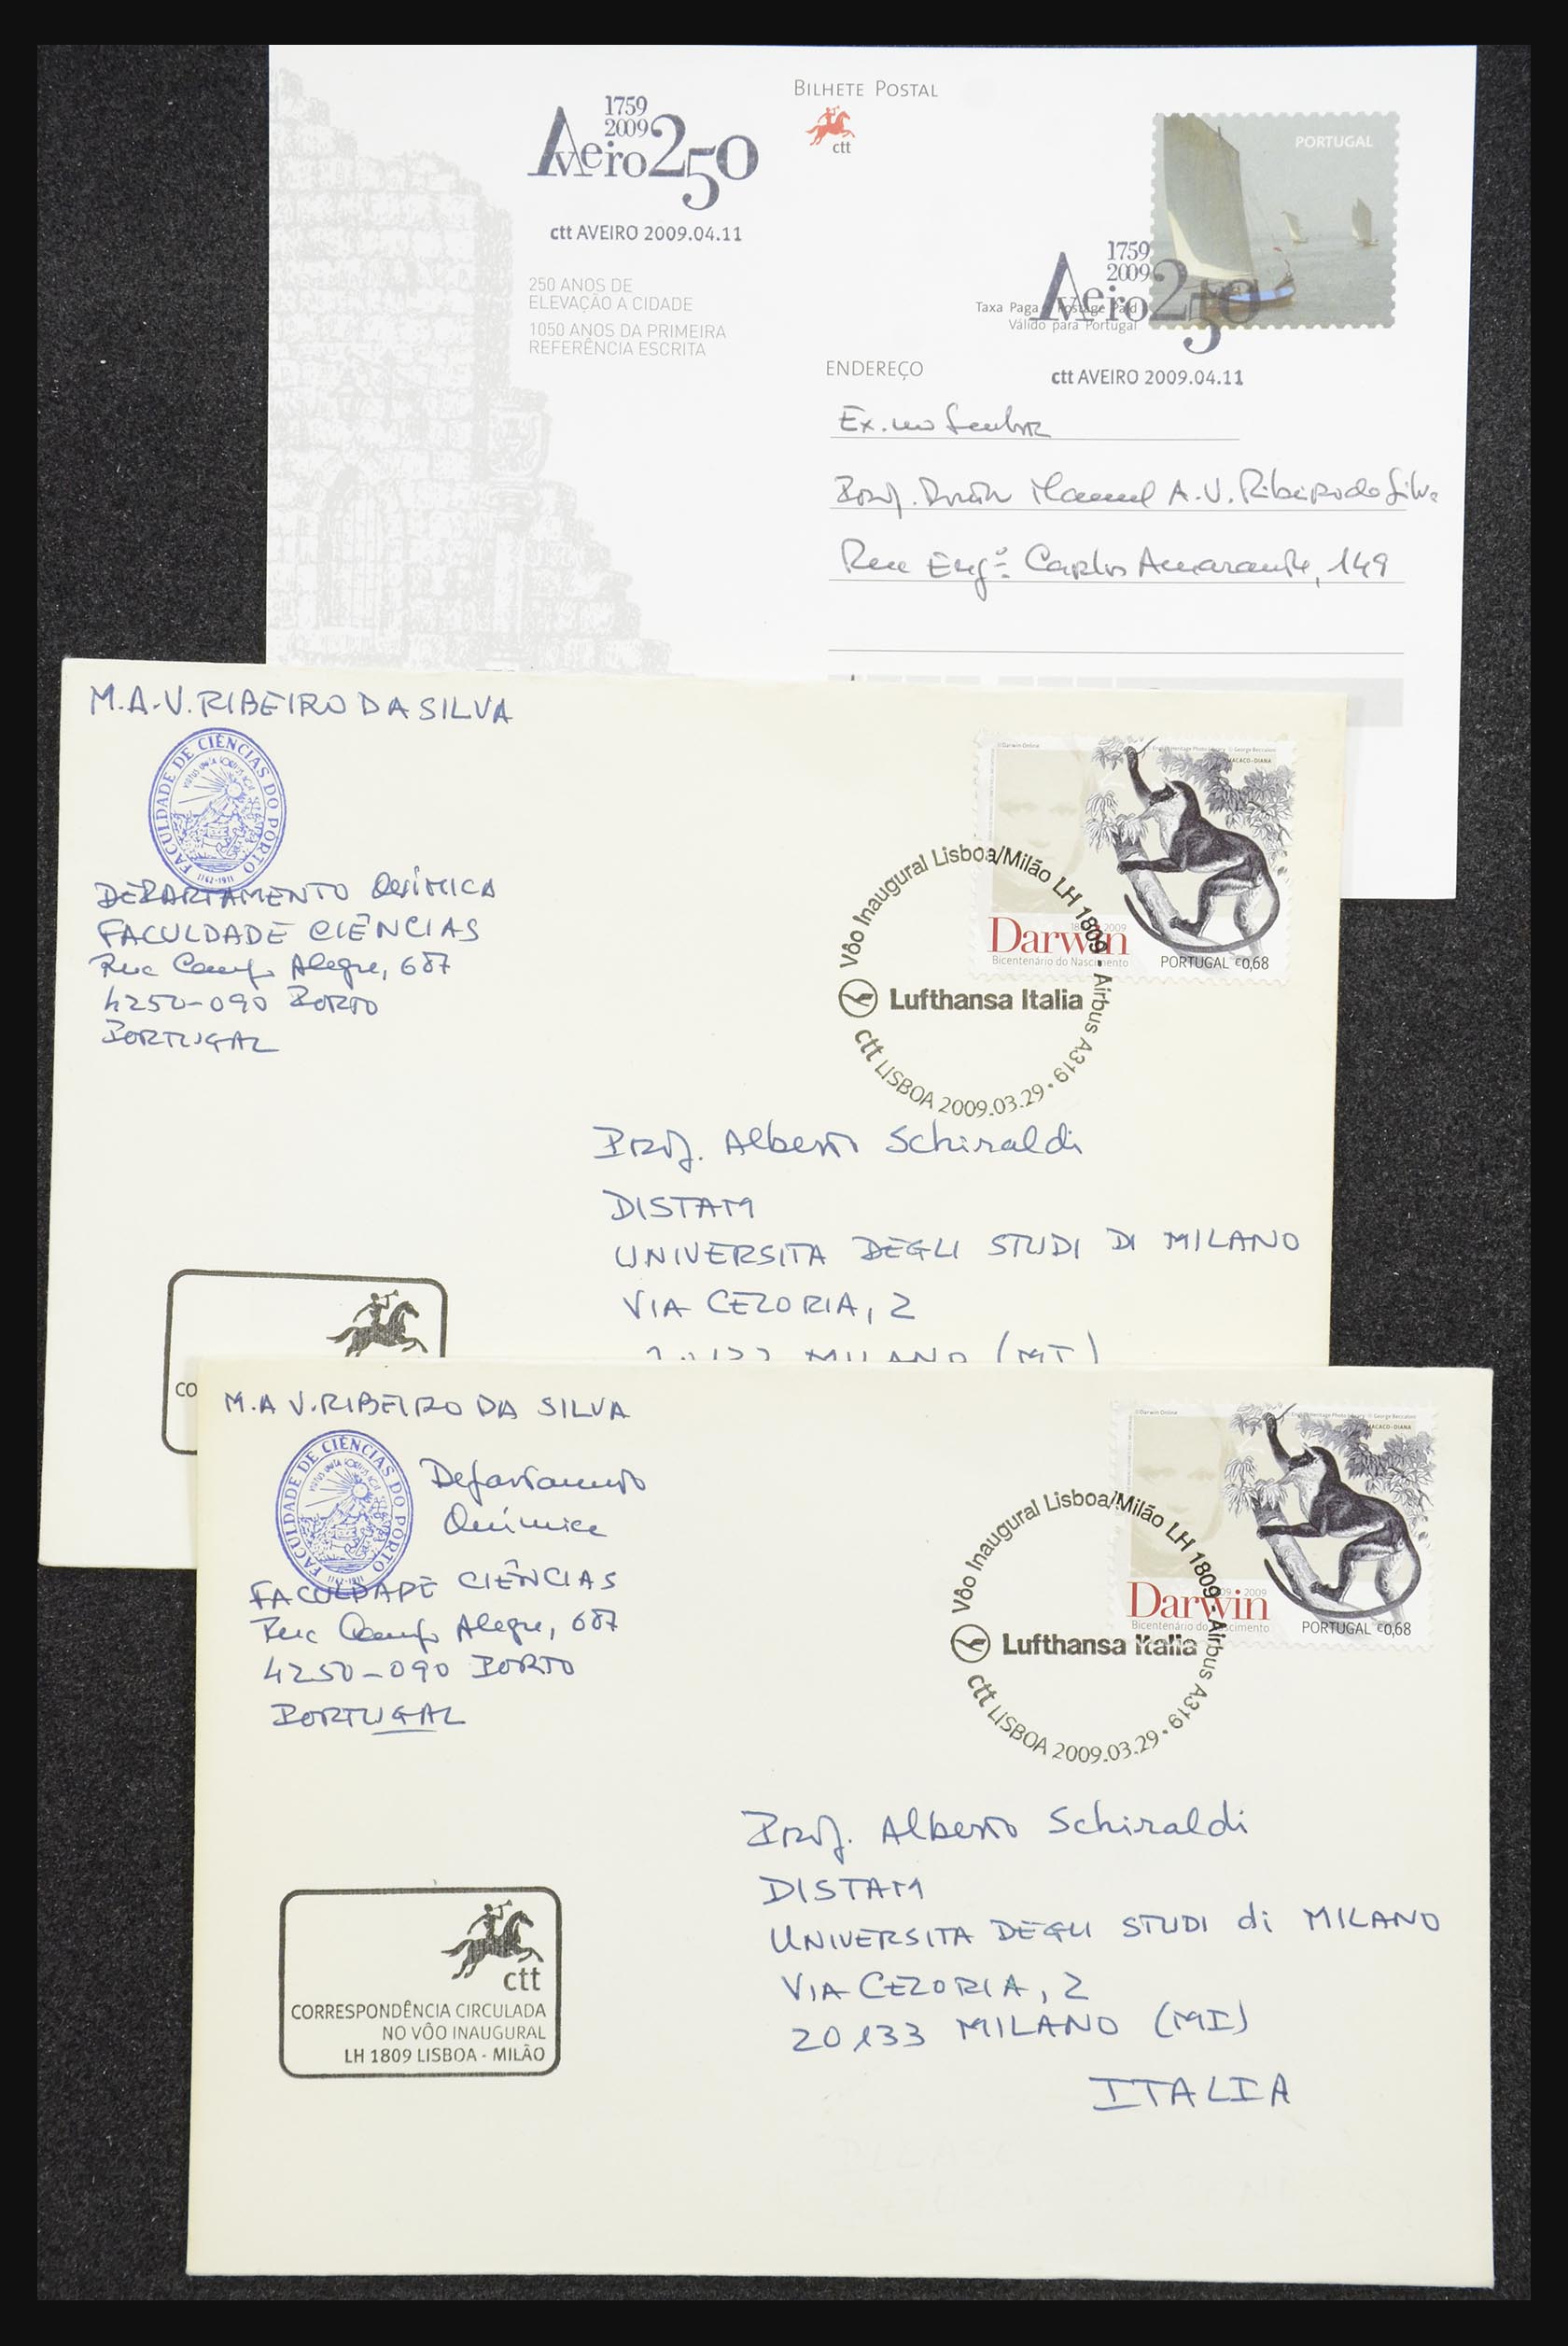 BILHETE POSTAL
ctt
1759
2009
Aveiro 250
ctt AVEIRO 2009.04.11
250 ANOS DE
ELEVAÇÃO A CIDADE
1050 ANOS DA PRIMEIRA
REFERÊNCIA ESCRITA
PORTUGAL
1759
2009
Aveiro 250
Taxa Paga Postage Paid
Válido para Portugal
ctt AVEIRO 2009.04.11
ENDEREÇO
Ex.mo Senhor
Prof. Doutor Manuel A. V. Ribeiro da Silva
Rua Engº Carlos Amarante, 149
M.A.V. RIBEIRO DA SILVA
FACULDADE DE CIÊNCIAS DO PORTO
1762-1911
DEPARTAMENTO QUÍMICA
FACULDADE CIÊNCIAS
Rua Campo Alegre, 687
4250-090 PORTO
PORTUGAL
© Darwin Online
© English Heritage Photo Library © George Beccaloni
MACACO-DIANA
Darwin
2009
Bicentenário do Nascimento
PORTUGAL €0,68
Vôo Inaugural Lisboa/Milão LH 1809 - Airbus A319
Lufthansa Italia
ctt LISBOA 2009.03.29
Prof. Alberto Schiraldi
DISTAM
UNIVERSITA DEGLI STUDI DI MILANO
VIA CELORIA, 2
MILANO (MI)
CO
M.A V. RIBEIRO DA SILVA
FACULDADE DE CIÊNCIAS DO PORTO
1762-1911
Departamento
Química
FACULDADE CIÊNCIAS
Rua Campo Alegre, 687
4250-090 PORTO
PORTUGAL
© Darwin Online
© English Heritage Photo Library © George Beccaloni
MACACO-DIANA
Darwin
2009
Bicentenário do Nascimento
PORTUGAL €0,68
Vôo Inaugural Lisboa/Milão LH 1809 - Airbus A319
Lufthansa Italia
ctt LISBOA 2009.03.29
Prof. Alberto Schiraldi
DISTAM
UNIVERSITA DEGLI STUDI di MILANO
VIA CELORIA, 2
20133 MILANO (MI)
ITALIA
ctt
CORRESPONDÊNCIA CIRCULADA
NO VÔO INAUGURAL
LH 1809 LISBOA - MILÃO